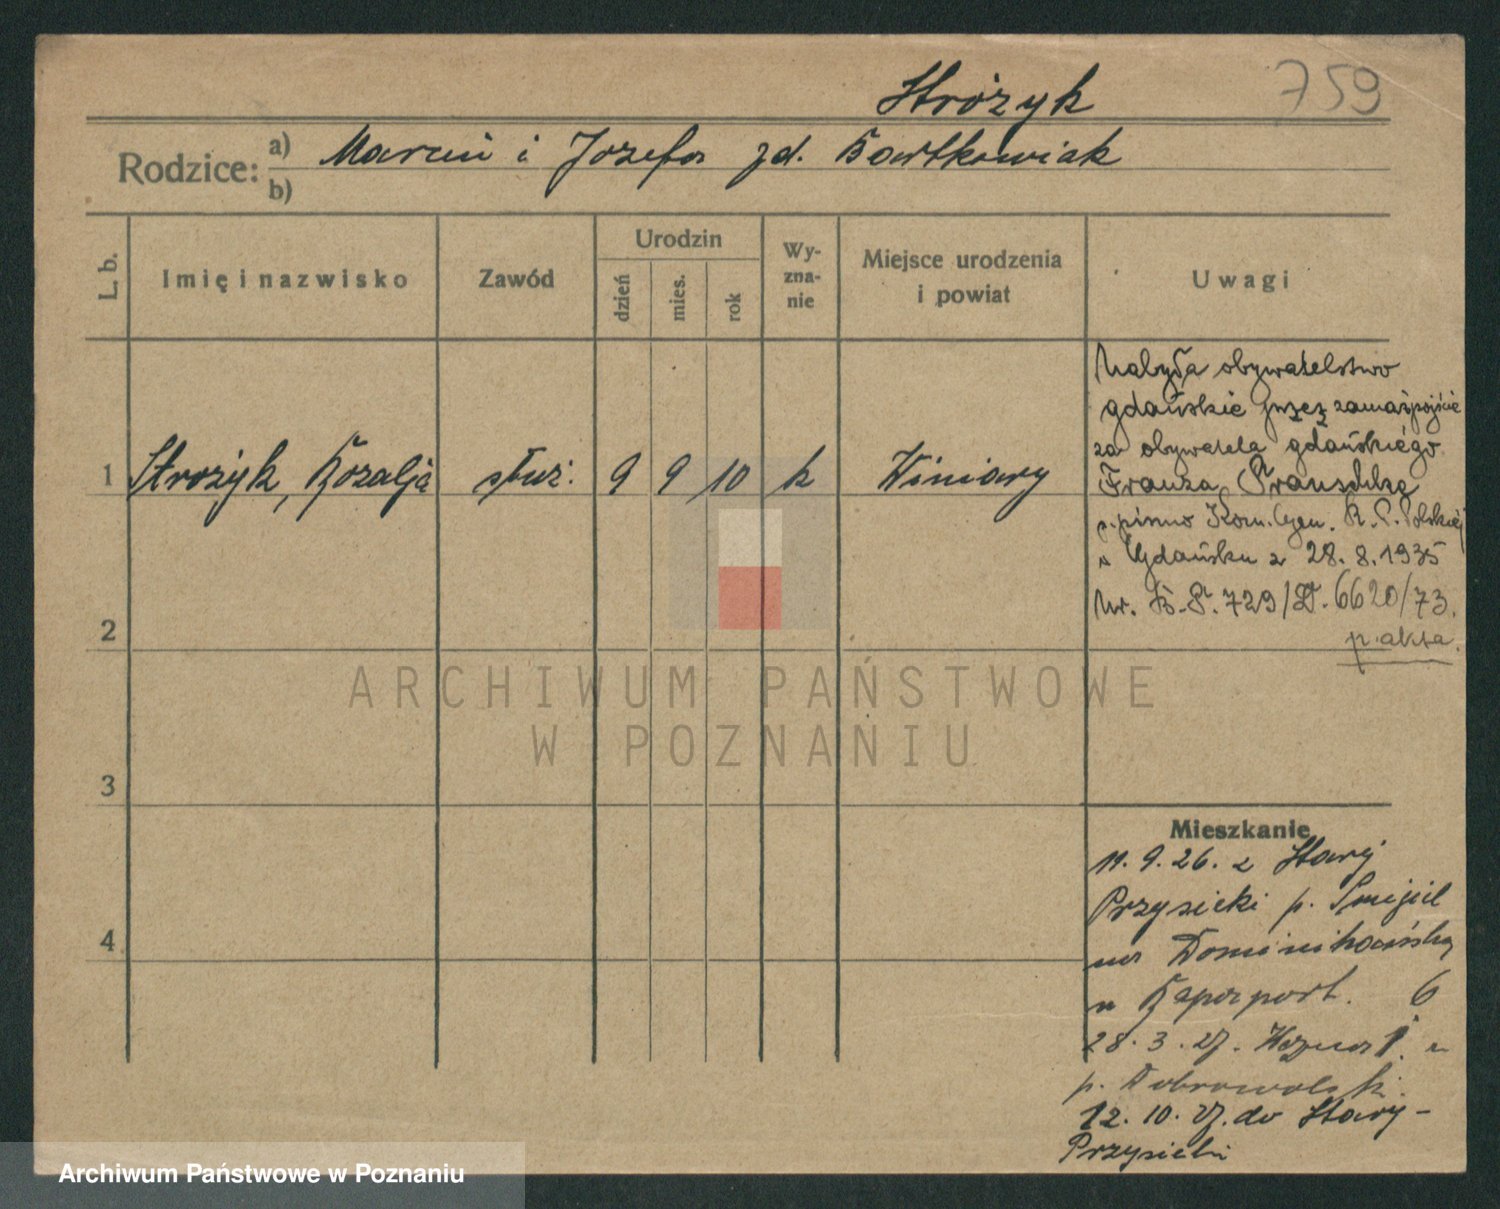 Stróżyk 759
Rodzice: a) Marcin i Józefa zd. Bartkowiak
b)
L. b. Imię i nazwisko Zawód Urodzin dzień mies. rok Wy-zna-nie Miejsce urodzenia i powiat Uwagi
1 Strożyk, Rozalja służ. 9 9 10 k Winiary
Nabyła obywatelstwo
gdańskie przez zamążpójście
za obywatela gdańskiego
Franza
p. pismo Kom. Gen. R. P. Polskiej
w Gdańsku z 28.8.1935
Nr. B.P. 729/D. 6620/73.
p. akta.
2
3
4
Mieszkanie
11. 9. 26. z Starej
Przysieki p. Śmigiel
na Dominikańską
u Rapaport. 6
28. 3. 27. 1. u
p. Dobrowolsk.
12. 10. 27. do Stary-
Przysieki
ARCHIWUM PAŃSTWOWE
W POZNANIU
Archiwum Państwowe w Poznaniu